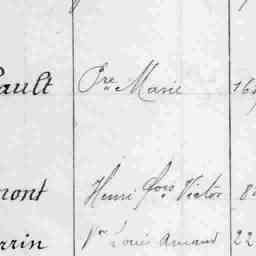 ault Pre Marie 16
mont Henri fois Victor 8
rrin Vor Louis Amand 22